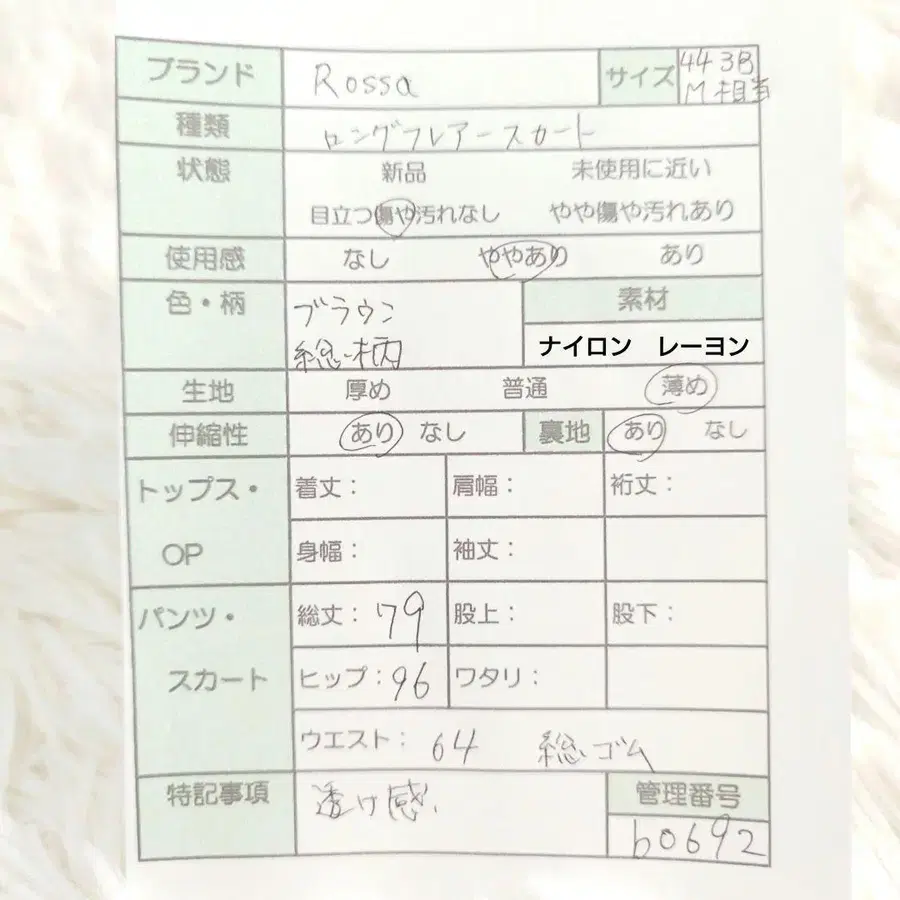 ブランド Rossa サイズ 44 3B
M相当
種類 ロングフレアースカート
状態 新品 未使用に近い
目立つ傷や汚れなし やや傷や汚れあり
使用感 なし ややあり あり
色・柄 ブラウン 素材
総柄 ナイロン レーヨン
生地 厚め 普通 薄め
伸縮性 あり なし 裏地 あり なし
トップス・ 着丈： 肩幅： 裄丈：
OP 身幅： 袖丈：
パンツ・ 総丈：79 股上： 股下：
スカート ヒップ：96 ワタリ：
ウエスト： 64 総ゴム
特記事項 透け感、 管理番号
b0692